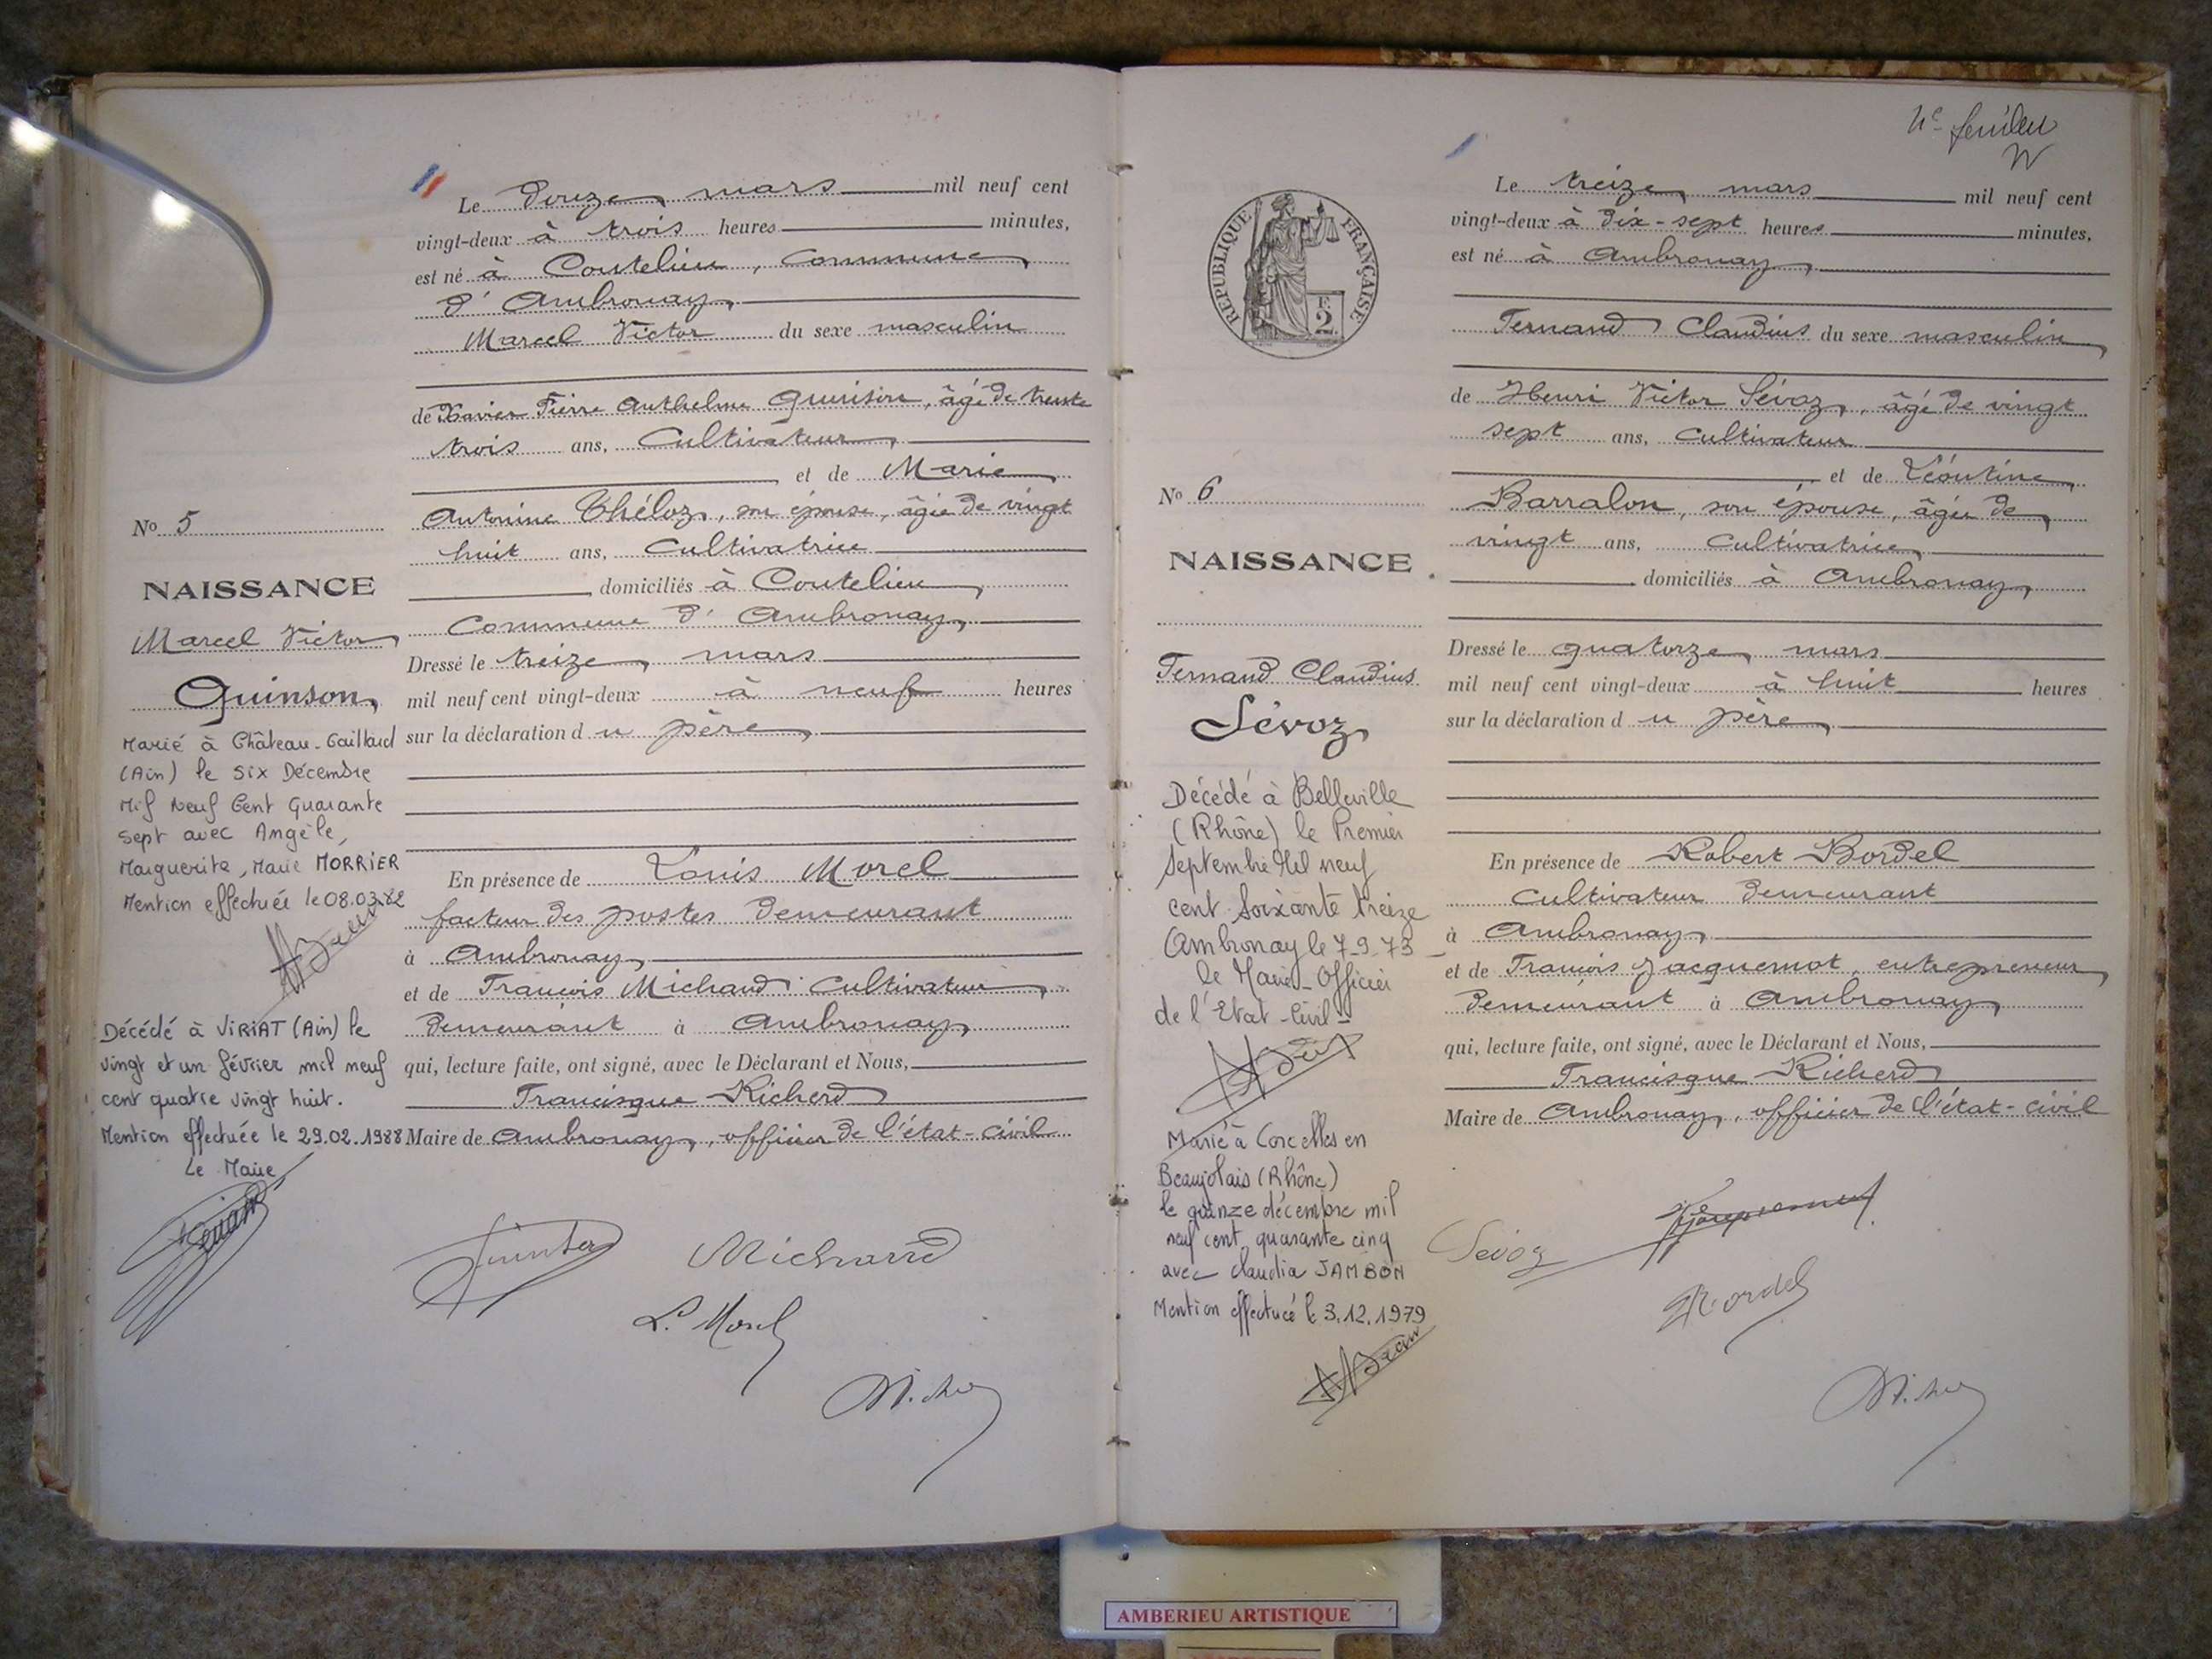 Le douze mars mil neuf cent
vingt-deux à trois heures minutes,
est né à Coutelieu, Commune
d'Ambronay,
Marcel Victor du sexe masculin
de Xavier Pierre Anthelme Quinson, âgé de trente
trois ans, Cultivateur,
et de Marie
Antonine Théloz, son épouse, âgée de vingt
huit ans, Cultivatrice
domiciliés à Coutelieu,
Commune d'Ambronay,
Dressé le treize mars
mil neuf cent vingt-deux à neuf heures
sur la déclaration du père,
En présence de Louis Morel
facteur des postes demeurant
à Ambronay,
et de François Michaud Cultivateur,
demeurant à Ambronay,
qui, lecture faite, ont signé, avec le Déclarant et Nous,
Francisque Richerd
Maire de Ambronay, officier de l'état-civil
No 5
NAISSANCE
Marcel Victor
Quinson,
Marié à Château-Gaillard
(Ain) le six Décembre
Mil Neuf Cent Quarante
sept avec Angèle,
Marguerite, Marie MORRIER
Mention effectuée le 08.03.82
Décédé à VIRIAT (Ain) le
vingt et un février mil neuf
cent quatre vingt huit.
Mention effectuée le 29.02.1988
Le Maire
Michaud
L. Morel
4e feuillet
REPUBLIQUE FRANÇAISE
F.
2.
Le treize mars mil neuf cent
vingt-deux à dix-sept heures minutes,
est né à Ambronay,
Fernand Claudius du sexe masculin,
de Henri Victor Sévoz, âgé de vingt
sept ans, Cultivateur
et de Léontine,
Barralon, son épouse, âgée de
vingt ans, Cultivatrice,
domiciliés à Ambronay,
Dressé le quatorze mars
mil neuf cent vingt-deux à huit heures
sur la déclaration du père,
En présence de Robert Bordel
Cultivateur demeurant
à Ambronay,
et de François Jacquemot, entrepreneur,
demeurant à Ambronay,
qui, lecture faite, ont signé, avec le Déclarant et Nous,
Francisque Richerd
Maire de Ambronay, officier de l'état-civil
No 6
NAISSANCE
Fernand Claudius
Sévoz,
Décédé à Belleville
(Rhône) le Premier
Septembre Mil neuf
cent Soixante treize
Ambronay le 7-9-73
le Maire-Officier
de l'Etat-Civil-
Marié à Corcelles en
Beaujolais (Rhône)
le quinze décembre mil
neuf cent quarante cinq
avec Claudia JAMBON
Mention effectuée le 3.12.1979
Sévoz
R. Bordel
AMBERIEU ARTISTIQUE